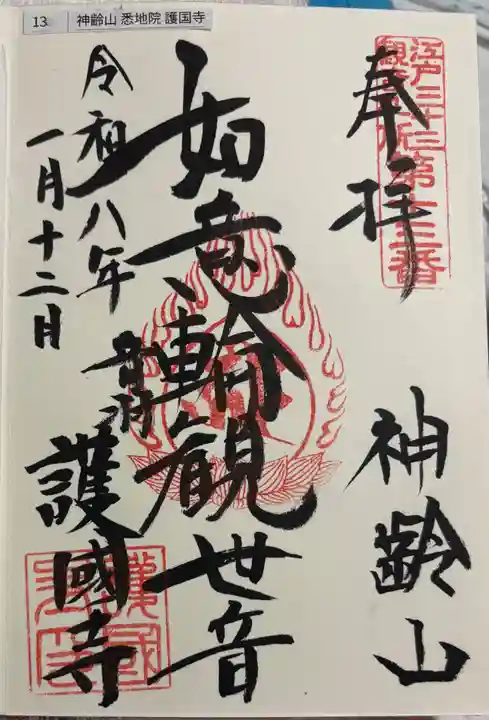 13 神齢山 悉地院 護国寺
江戸三十三
観音札所
第十三番
奉拝
神齢山
如意輪観世音
音羽
護國寺
令和八年
一月十二日